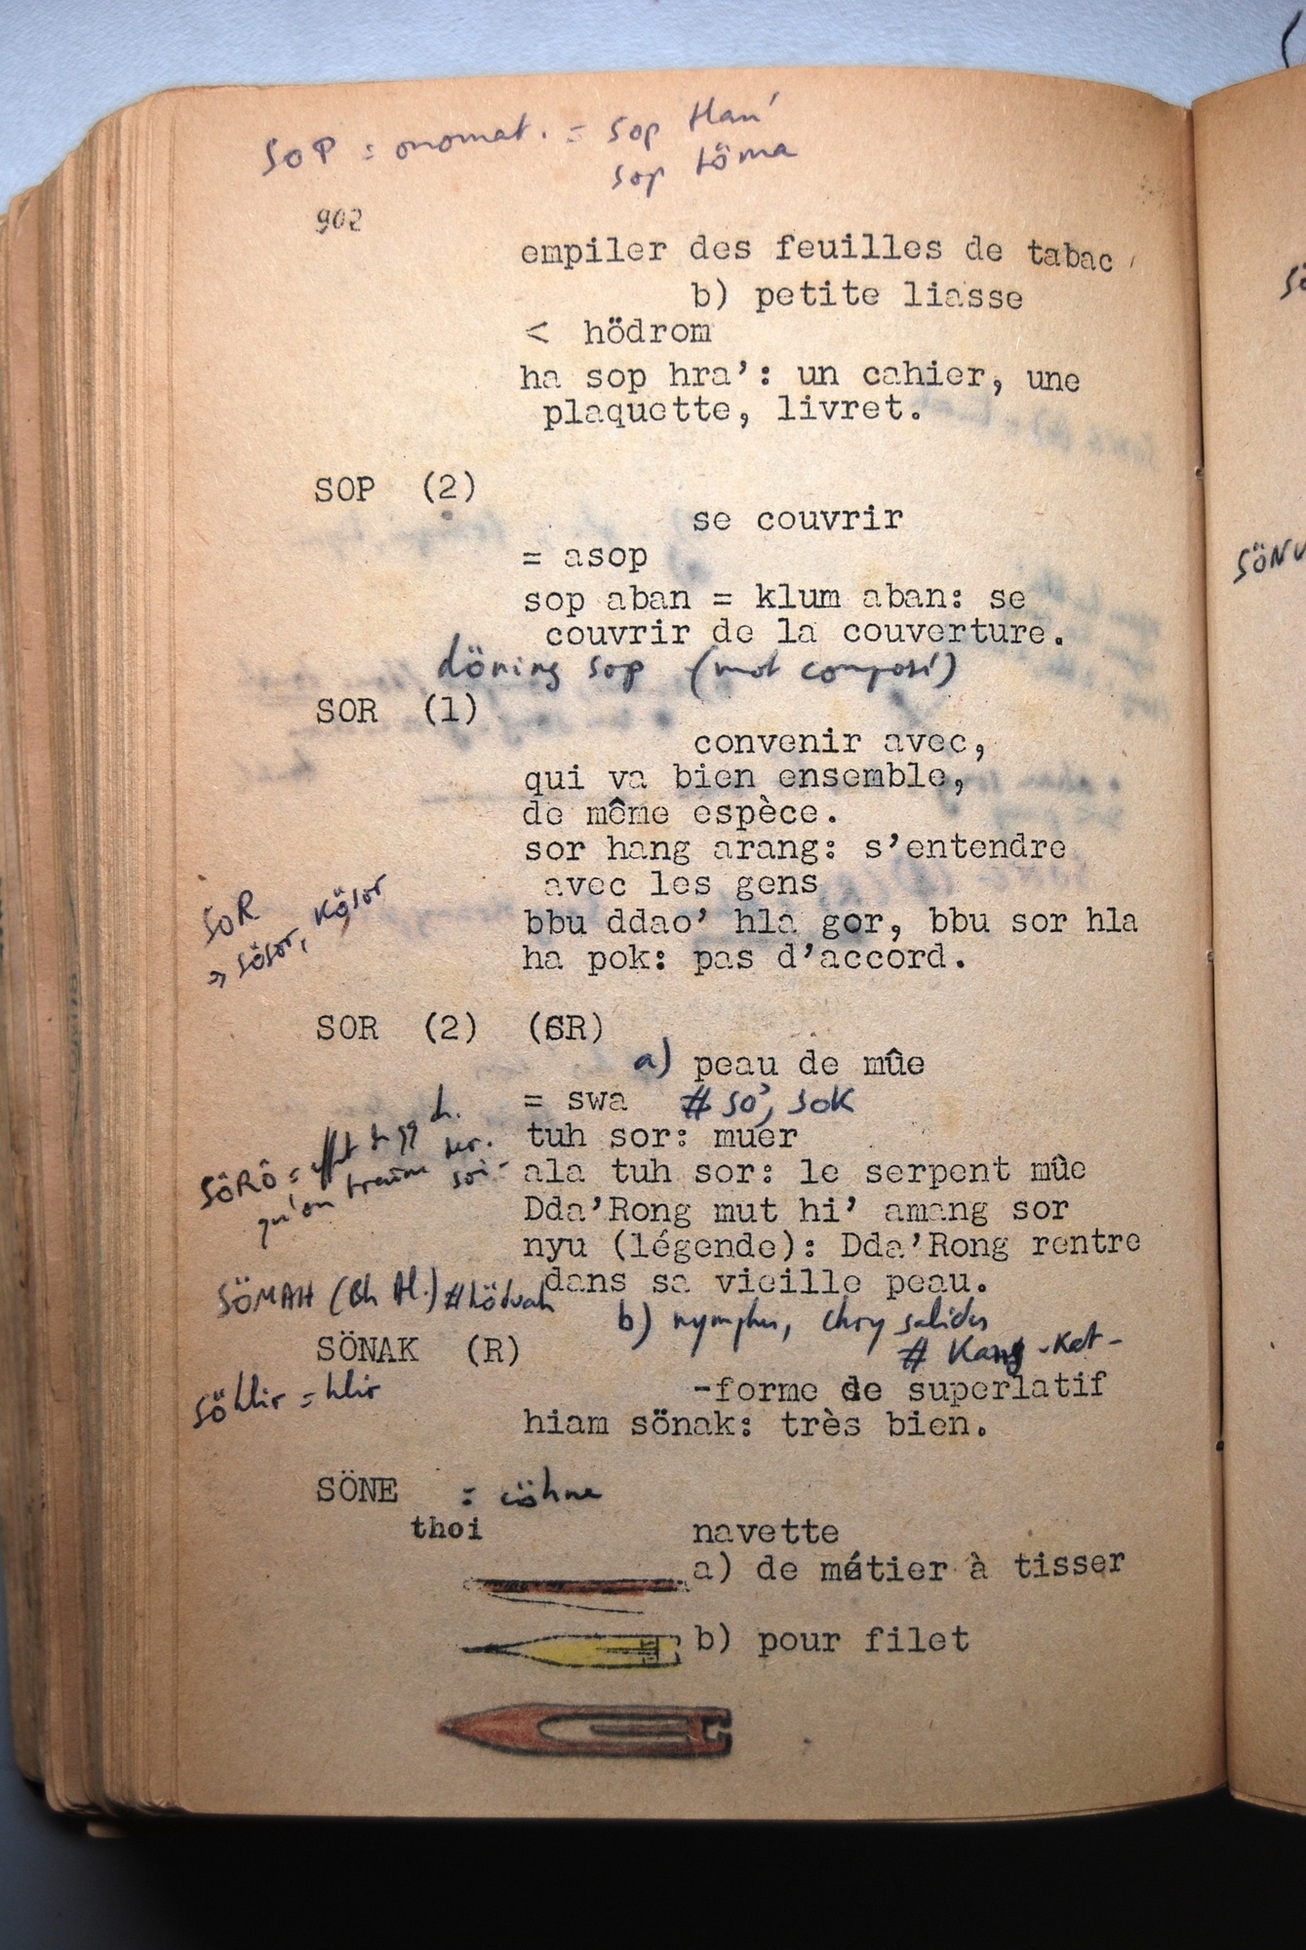 SOP = onomat. = sop tlani
sop töma
902
empiler des feuilles de tabac
b) petite liasse
< hödrom
ha sop hra’: un cahier, une
plaquette, livret.
SOP (2)
se couvrir
= asop
sop aban = klum aban: se
couvrir de la couverture.
döning sop (mot composé)
SOR (1)
convenir avec,
qui va bien ensemble,
de même espèce.
sor hang arang: s’entendre
avec les gens
SOR
bbu ddao’ hla gor, bbu sor hla
=> sösor, kösor
ha pok: pas d’accord.
SOR (2) (SR)
a) peau de mûe
= swa # so’, sok
tuh sor: muer
SÖRÖ =
qu'on
ala tuh sor: le serpent mûe
Dda’Rong mut hi’ amang sor
nyu (légende): Dda’Rong rentre
dans sa vieille peau.
SÖMAH (Bh Al.)
b) nymphes, chrysalides
SÖNAK (R)
# Kang-Kat-
söhlir = hlir
-forme de superlatif
hiam sönak: très bien.
SÖNE = cöhne
thoi navette
a) de métier à tisser
b) pour filet
SÖNU